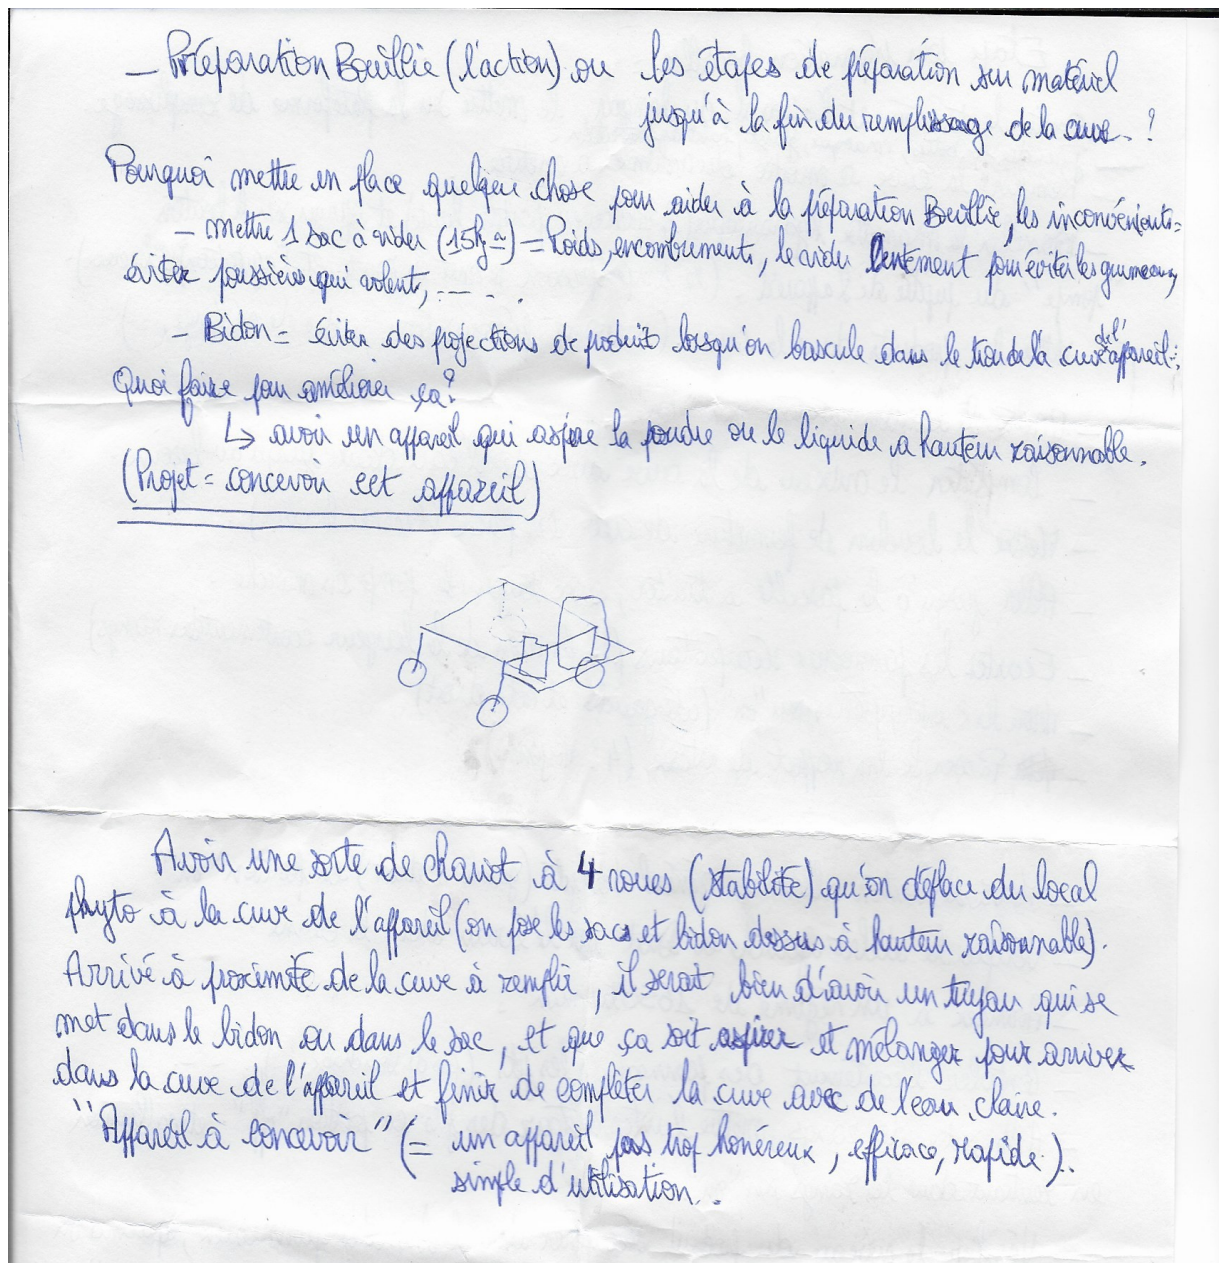 — Préparation Bouillie (l'action) ou les étapes de préparation sur matériel
jusqu'à la fin du remplissage de la cuve.. !
Pourquoi mettre en place quelque chose pour aider à la préparation Bouillie, les inconvénients =
— mettre 1 sac à vider (15kg ≈) = Poids, encombrements, le vider lentement pour éviter les grumeaux,
éviter poussières qui volent, -- - .
— Bidon = éviter des projections de produit lorsqu'on bascule dans le trou de la cuve de l'appareil :
Quoi faire pour améliorer ça ?
↳ avoir un appareil qui aspire la poudre ou le liquide a hauteur raisonnable.
(Projet = concevoir cet appareil)
Avoir une sorte de chariot à 4 roues (stabilité) qu'on déplace du local
phyto à la cuve de l'appareil (on pose les sacs et bidon dessus à hauteur raisonnable).
Arrivé à proximité de la cuve à remplir, il serait bien d'avoir un tuyau qui se
met dans le bidon ou dans le sac, et que ça soit aspirer et mélanger pour arriver
dans la cuve de l'appareil et finir de compléter la cuve avec de l'eau claire.
"Appareil à concevoir" (= un appareil pas trop honéreux, efficace, rapide.).
simple d'utilisation..